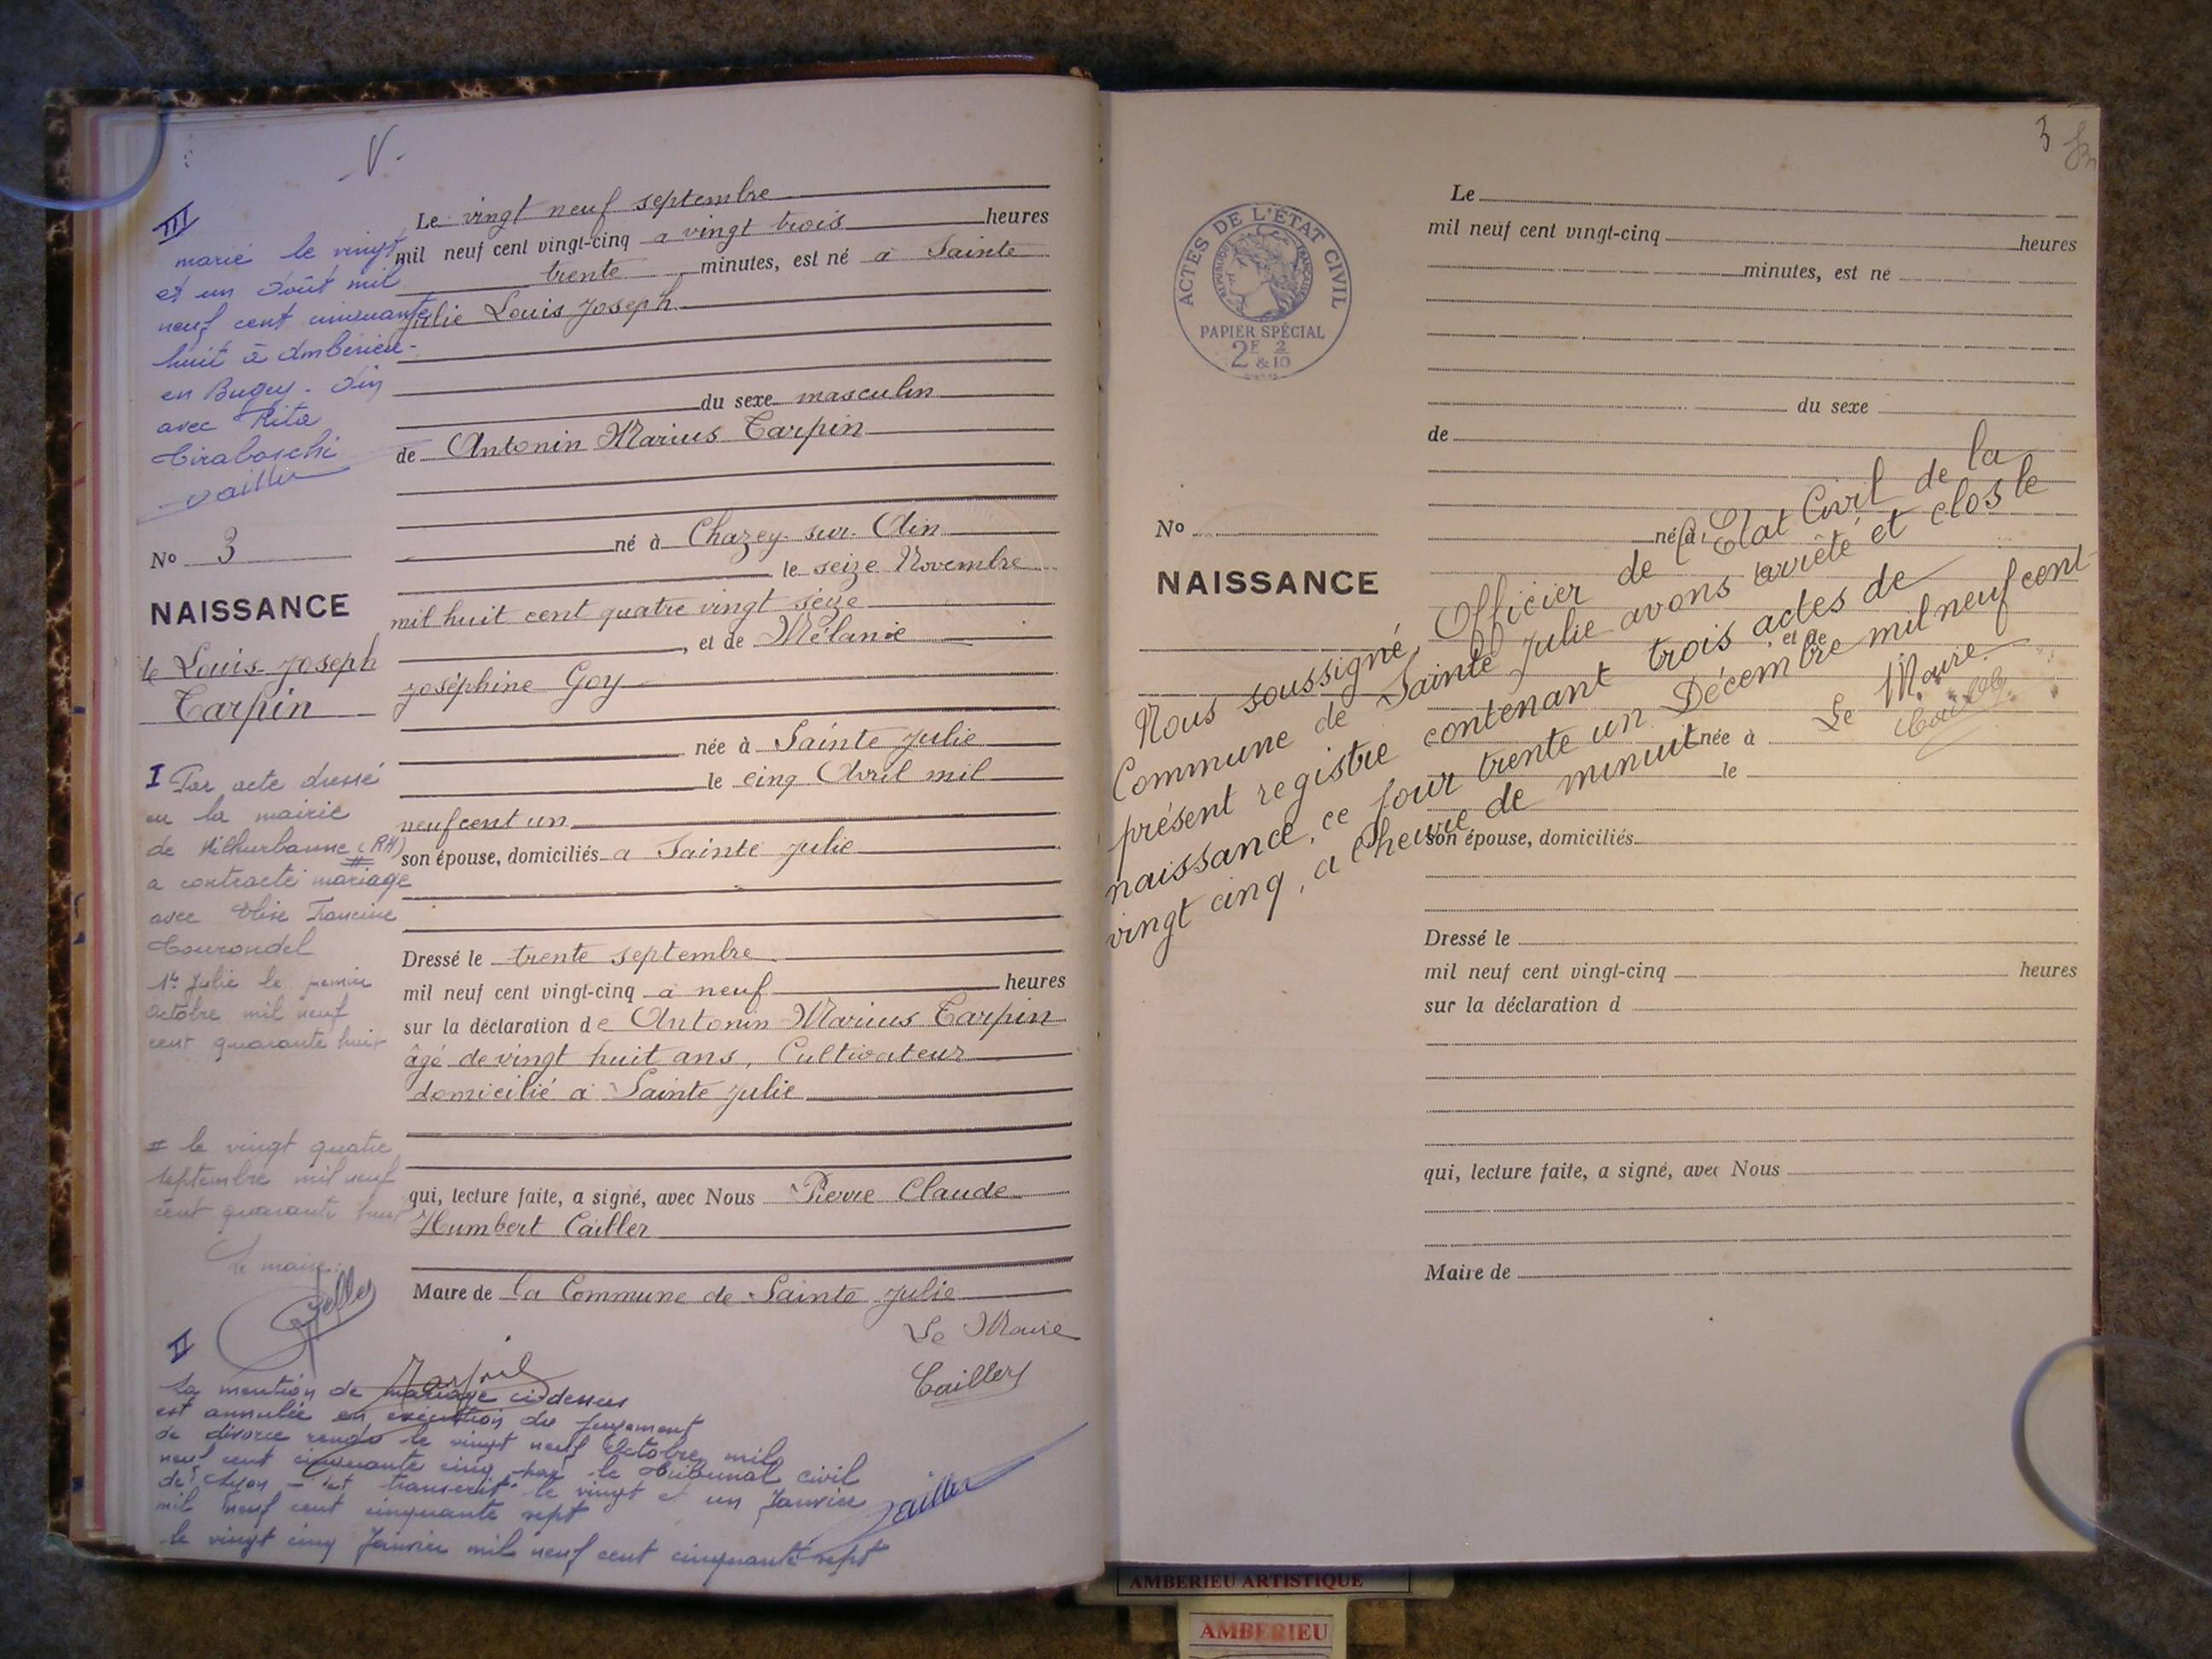 V.
III
marié le vingt
et un Août mil
neuf cent cinquante
huit à Ambérieu-
en Bugey. Ain
avec Rita
Tiraboschi
Cailler
No 3
NAISSANCE
de Louis Joseph
Tarpin
I Par acte dressé
en la mairie
de Villeurbanne (RH)
#
a contracté mariage
avec Elise Francine
Courondel
Ste Julie le premier
Octobre mil neuf
cent quarante huit
# le vingt quatre
septembre mil neuf
cent quarante huit
Le maire:
Le vingt neuf septembre
mil neuf cent vingt-cinq a vingt trois heures
trente minutes, est né a Sainte
Julie Louis Joseph
du sexe masculin
de Antonin Marius Tarpin
né à Chazey-sur-Ain
le seize Novembre
mil huit cent quatre vingt seize
, et de Mélanie
Joséphine Goy
née à Sainte Julie
le cinq Avril mil
neuf cent un
son épouse, domiciliés a Sainte Julie
Dressé le trente septembre
mil neuf cent vingt-cinq a neuf heures
sur la déclaration de Antonin Marius Tarpin
âgé de vingt huit ans, Cultivateur
domicilié a Sainte Julie
qui, lecture faite, a signé, avec Nous Pierre Claude
Humbert Cailler
Maire de la Commune de Sainte Julie
Le Maire
Cailler
Tarpin
II
La mention de mariage ci-dessus
est annulée en exécution du jugement
de divorce rendu le vingt neuf Octobre mil
neuf cent cinquante cinq par le Tribunal civil
de Lyon - et transcrit le vingt et un Janvier
mil neuf cent cinquante sept
le vingt cinq Janvier mil neuf cent cinquante sept
Cailler
3
ACTES DE L'ÉTAT CIVIL
RÉPUBLIQUE FRANÇAISE
PAPIER SPÉCIAL
2F 2
&10
No
NAISSANCE
Le
mil neuf cent vingt-cinq heures
minutes, est né
du sexe
de
né à
le
, et de
née à
le
son épouse, domiciliés
Dressé le
mil neuf cent vingt-cinq heures
sur la déclaration d
qui, lecture faite, a signé, avec Nous
Maire de
Nous soussigné, Officier de l'Etat Civil de la
Commune de Sainte Julie avons arrêté et clos le
présent registre contenant trois actes de
naissance, ce jour trente un Décembre mil neuf cent
vingt cinq, a l'heure de minuit
Le Maire
Cailler
AMBERIEU ARTISTIQUE
AMBERIEU